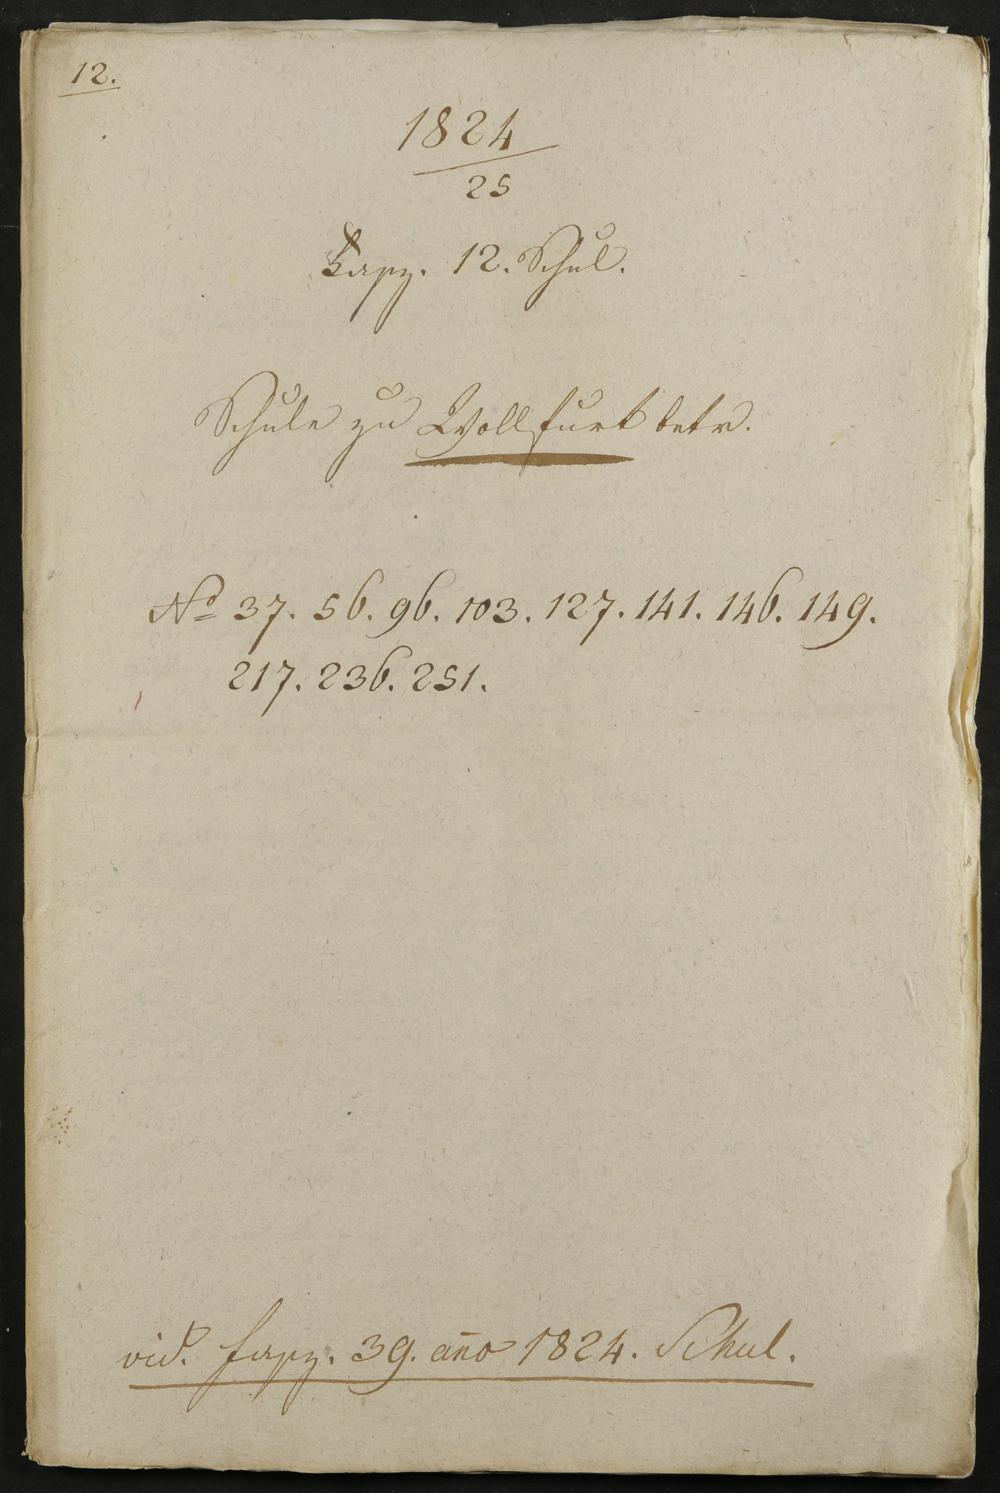 12.
1824
25
Fasz. 12. Schul.
Schule zu Wollfurt betr.
No 37. 56. 96. 103. 127. 141. 146. 149.
217. 236. 251.
vid. fasz. 39. año 1824. Schul.